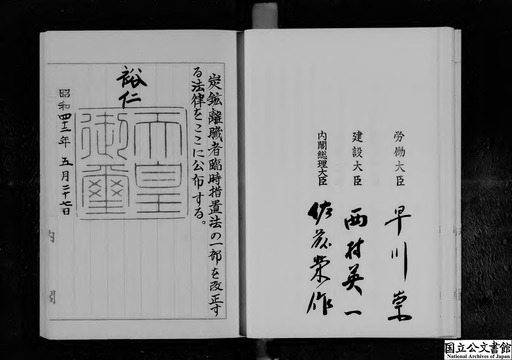 炭鉱離職者臨時措置法の一部を改正す
る法律をここに公布する。
裕仁
天皇
御璽
昭和四十二年五月二十七日
労働大臣 早川崇
建設大臣 西村英一
内閣総理大臣 佐藤榮作
国立公文書館
National Archives of Japan